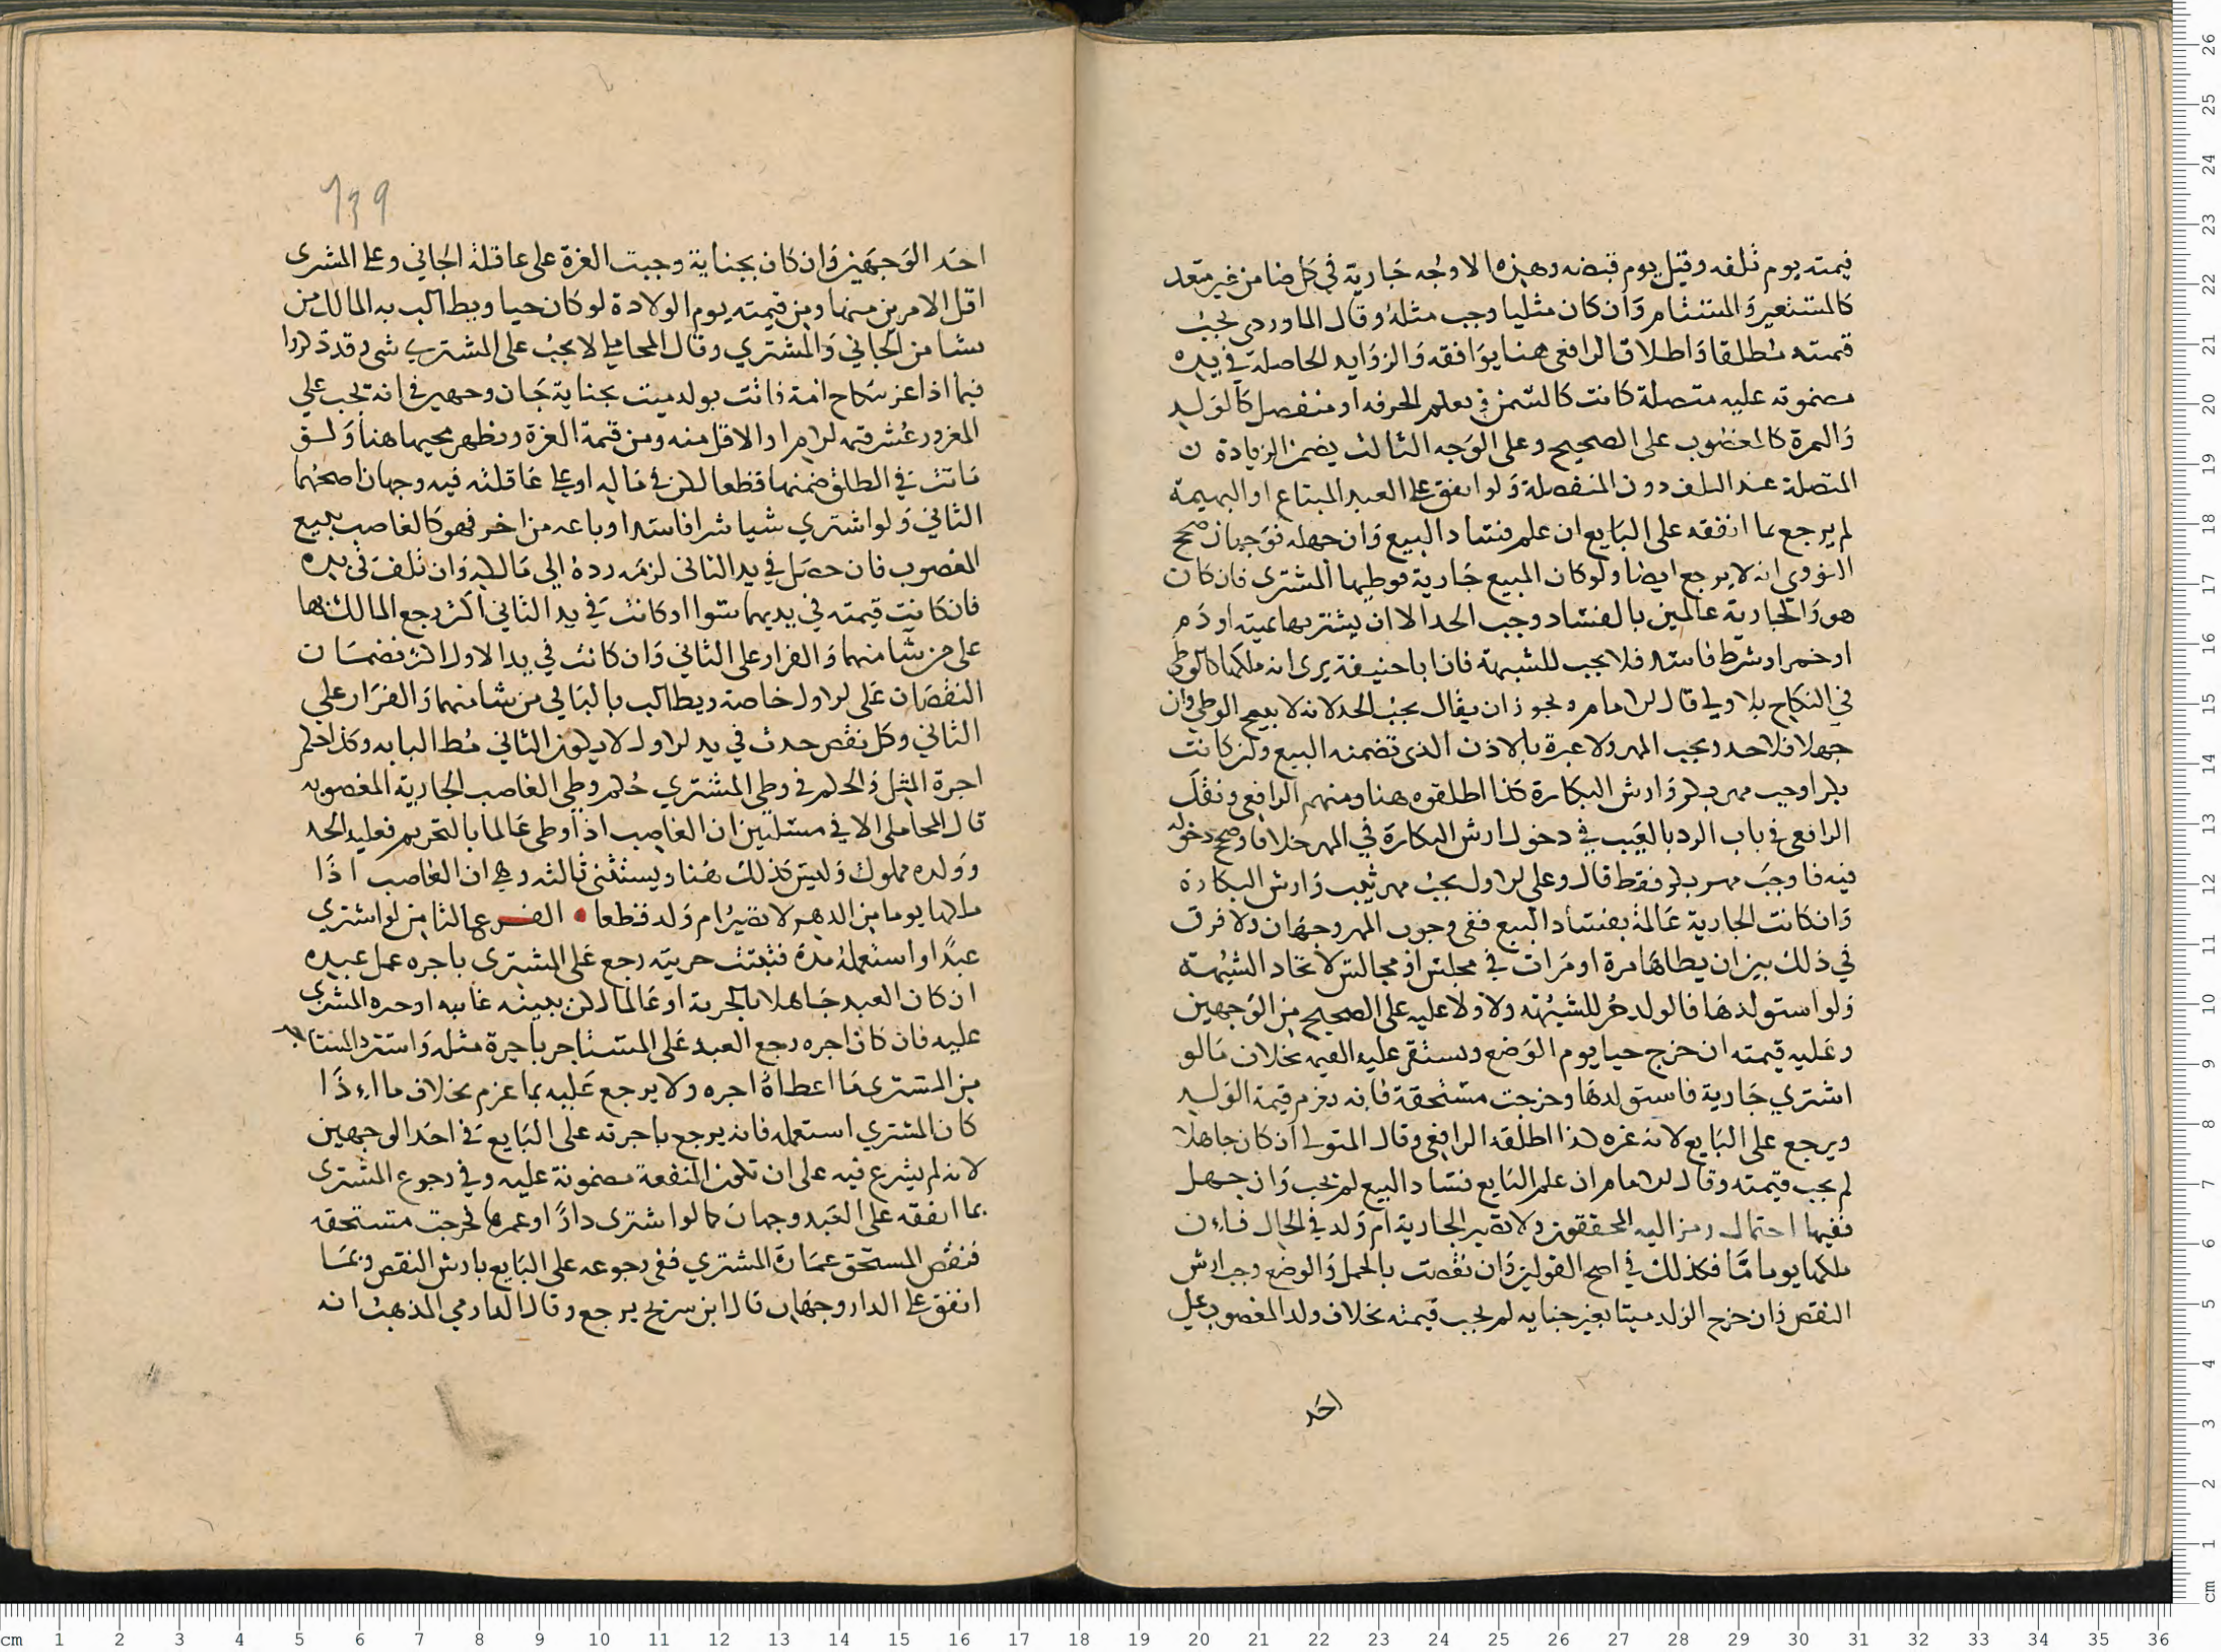 قيمته يوم تلفه وقيل يوم قبضه وهذه الاوجه جارية في كل ضامن غير متعد
كالمستعير والمستام وان كان مثليا وجب مثله وقال الماوردي يجب
قيمته مطلقا واطلاق الرافعي هنا يوافقه والزوايد الحاصلة في يده
مضمونه عليه متصلة كانت كالسمن وتعلم الحرفه او منفصل كالولد
والثمرة كالمغصوب على الصحيح وعلى الوجه الثالث يضمن الزيادة
المتصلة عند التلف دون المنفصلة ولو انفق على العبد المبتاع او البهيمة
لم يرجع بما انفقه على البايع ان علم فساد البيع وان جهله فوجهان صحح
النووي انه لا يرجع ايضا ولو كان المبيع جارية فوطيها المشتري فان كان
هو والجارية عالمين بالفساد وجب الحد الا ان يشتريها بميته او دم
او خمر او شرط فاسد فلا يجب للشبهة فان ابا حنيفة يرى انه ملكها كالوطي
في النكاح بلا ولي قال الامام ويجوز ان يقال يجب الحد لانه لا يبيح الوطي وان
جهلا فلا حد ويجب المهر ولا عبرة بالاذن الذي تضمنه البيع ولن كانت
بكرا وجب مهر بكر وارش البكارة كذا اطلقوه هنا ومنهم الرافعي ونقل
الرافعي في باب الرد بالعيب في دخول ارش البكارة في المهر خلافا وصحح دخوله
فيه فاوجب مهر بكر فقط قال وعلى الاول يجب مهر ثيب وارش البكارة
وان كانت الجارية عالمة بفساد البيع ففي وجوب المهر وجهان ولا فرق
في ذلك بين ان يطاها مرة او مرات في مجلس او مجالس لاتحاد الشبهة
ولو استولدها فالولد حر للشبهة ولا ولا عليه على الصحيح من الوجهين
وعليه قيمته ان خرج حيا يوم الوضع ويستقر عليه القيمه بخلاف مالو
اشتري جارية فاستولدها وخرجت مستحقة فانه يغرم قيمة الولد
ويرجع على البايع لانه غره كذا اطلقه الرافعي وقال المتولي ان كان جاهلا
لم يجب قيمته وقال الامام ان علم البايع فساد البيع لم تجب وان جهل
ففيها احتمال رمز اليه المحققون ولا تصير الجارية ام ولد في الحال فان
ملكها يوما ما فكذلك في اصح القولين وان نقصت بالحمل والوضع وجب ارش
النقص وان خرج الولد ميتا بغير جنايه لم يجب قيمته بخلاف ولد المغصوب على
احد
٦٣٩
احد الوجهين وان كان بجناية وجبت الغرة على عاقلة الجاني وعلى المشتري
اقل الامرين منها ومن قيمته يوم الولادة لو كان حيا ويطالب به المالك من
شا من الجاني والمشتري وقال المحاملي لا يجب على المشتري شي وقد ذكروا
فيما اذا غر بنكاح امة فاتت بولد ميت بجناية جان وجهين في انه يجب على
المغرور عشر قيمة الام او الاقل منه ومن قيمة الغرة ويظهر مجيهما هنا ولو
ماتت في الطلق ضمنها قطعا لكن في ماله او على عاقلته فيه وجهان اصحهما
الثاني ولو اشتري شيا شرا فاسدا وباعه من اخر فهو كالغاصب يبيع
المغصوب فان حصل في يد الثاني لزمه رده الى مالكه وان تلف في يده
فان كانت قيمته في يديهما سوا او كانت في يد الثاني اكثر رجع المالك بها
على من شا منهما والقرار على الثاني وان كانت في يد الاول اكثر فضمان
النقصان على الاول خاصة ويطالب بالباقي من شا منهما والقرار على
الثاني وكل نقص حدث في يد الاول لا يكون الثاني مطالبا به وكذا حكم
اجرة المثل والحكم في وطي المشتري حكم وطي الغاصب الجارية المغصوبه
قال المحاملي الا في مسئلتين ان الغاصب اذا وطي عالما بالتحريم فعليه الحد
وولده مملوك وليس كذلك هنا ويستثني ثالثه وهي ان الغاصب اذا
ملكها يوما من الدهر لا تصير ام ولد قطعا • الفرع الثامن لو اشتري
عبدا واستعمله مدة فثبتت حريته رجع على المشتري باجره عمل عبيده
ان كان العبد جاهلا بالحرية او عالما لكن بينه غايبه او حره المشتري
عليه فان كان اجره رجع العبد على المستاجر باجرة مثله واسترد المستاجر
من المشتري ما اعطاه اجره ولا يرجع عليه بما غرم بخلاف ما اذا
كان المشتري استعمله فانه يرجع باجرته على البايع في احد الوجهين
لانه لم يشرع فيه على ان تكون المنفعة مضمونة عليه وفي رجوع المشتري
بما انفقه على العبد وجهان كما لو اشتري دارا وعمرها فخرجت مستحقه
فنقض المستحق عمارة المشتري ففي رجوعه على البايع بارش النقص وبما
انفق على الدار وجهان قال ابن سريج يرجع وقال الدارمي المذهب انه